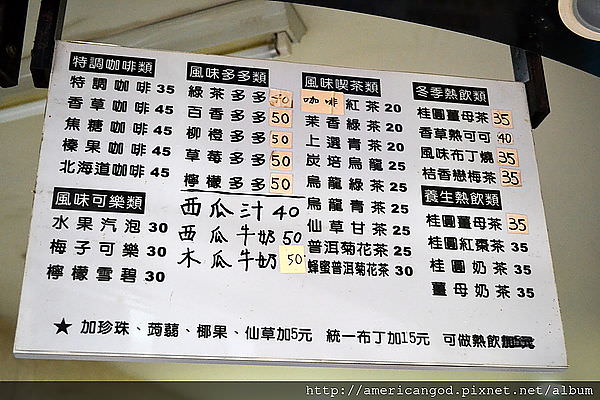 特調咖啡類
特調咖啡 35
香草咖啡 45
焦糖咖啡 45
榛果咖啡 45
北海道咖啡 45
風味可樂類
水果汽泡 30
梅子可樂 30
檸檬雪碧 30
風味多多類
綠茶多多 40
百香多多 50
柳橙多多 50
草莓多多 50
檸檬多多 50
西瓜汁 40
西瓜牛奶 50
木瓜牛奶 50
風味喫茶類
咖啡紅茶 20
茉香綠茶 20
上選青茶 20
炭焙烏龍 25
烏龍綠茶 25
烏龍青茶 25
仙草甘茶 25
普洱菊花茶 25
蜂蜜普洱菊花茶 30
冬季熱飲類
桂圓薑母茶 35
香草熱可可 40
風味布丁燒 35
桔香戀梅茶 35
養生熱飲類
桂圓薑母茶 35
桂圓紅棗茶 35
桂圓奶茶 35
薑母奶茶 35
★ 加珍珠、蒟蒻、椰果、仙草加5元 統一布丁加15元 可做熱飲
http://americangod.pixnet.net/album